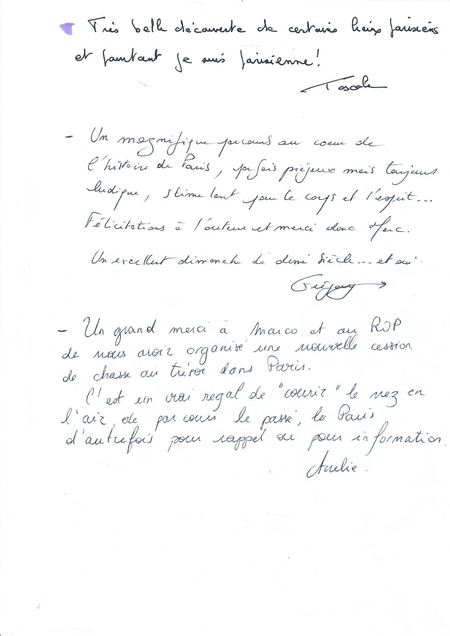 Très belle découverte de certains lieux parisiens
et pourtant je suis parisienne !
Pascale
- Un magnifique parcours au coeur de
l'histoire de Paris, parfois piégeux mais toujours
ludique, stimulant pour le corps et l'esprit...
Félicitations à l'auteur et merci donc Marc.
Un excellent dimanche de demi siècle... et oui.
Grégory
- Un grand merci à Marco et au RDP
de nous avoir organisé une nouvelle cession
de chasse au trésor dans Paris.
C'est un vrai regal de "courir" le nez en
l'air, de parcourir le passé, le Paris
d'autrefois pour rappel ou pour information.
Aurelie.